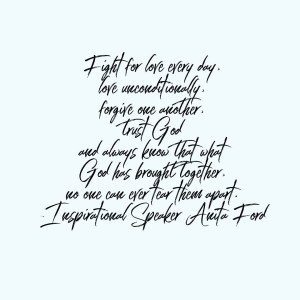 Fight for love every day.
love unconditionally.
forgive one another.
trust God
and always know that what
God has brought together.
no one can ever tear them apart.
-Inspirational Speaker Anita Ford